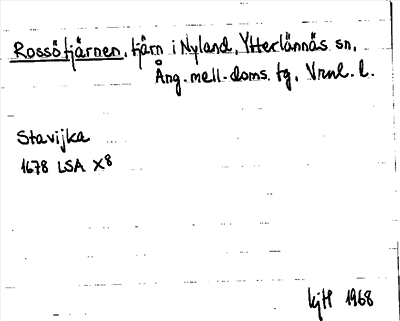 Rossötjärnen, tjärn i Nyland, Ytterlännäs sn,
Ång. mell. doms. tg, Vrnl. l.
Stavijka
1678 LSA X8
kjH 1968